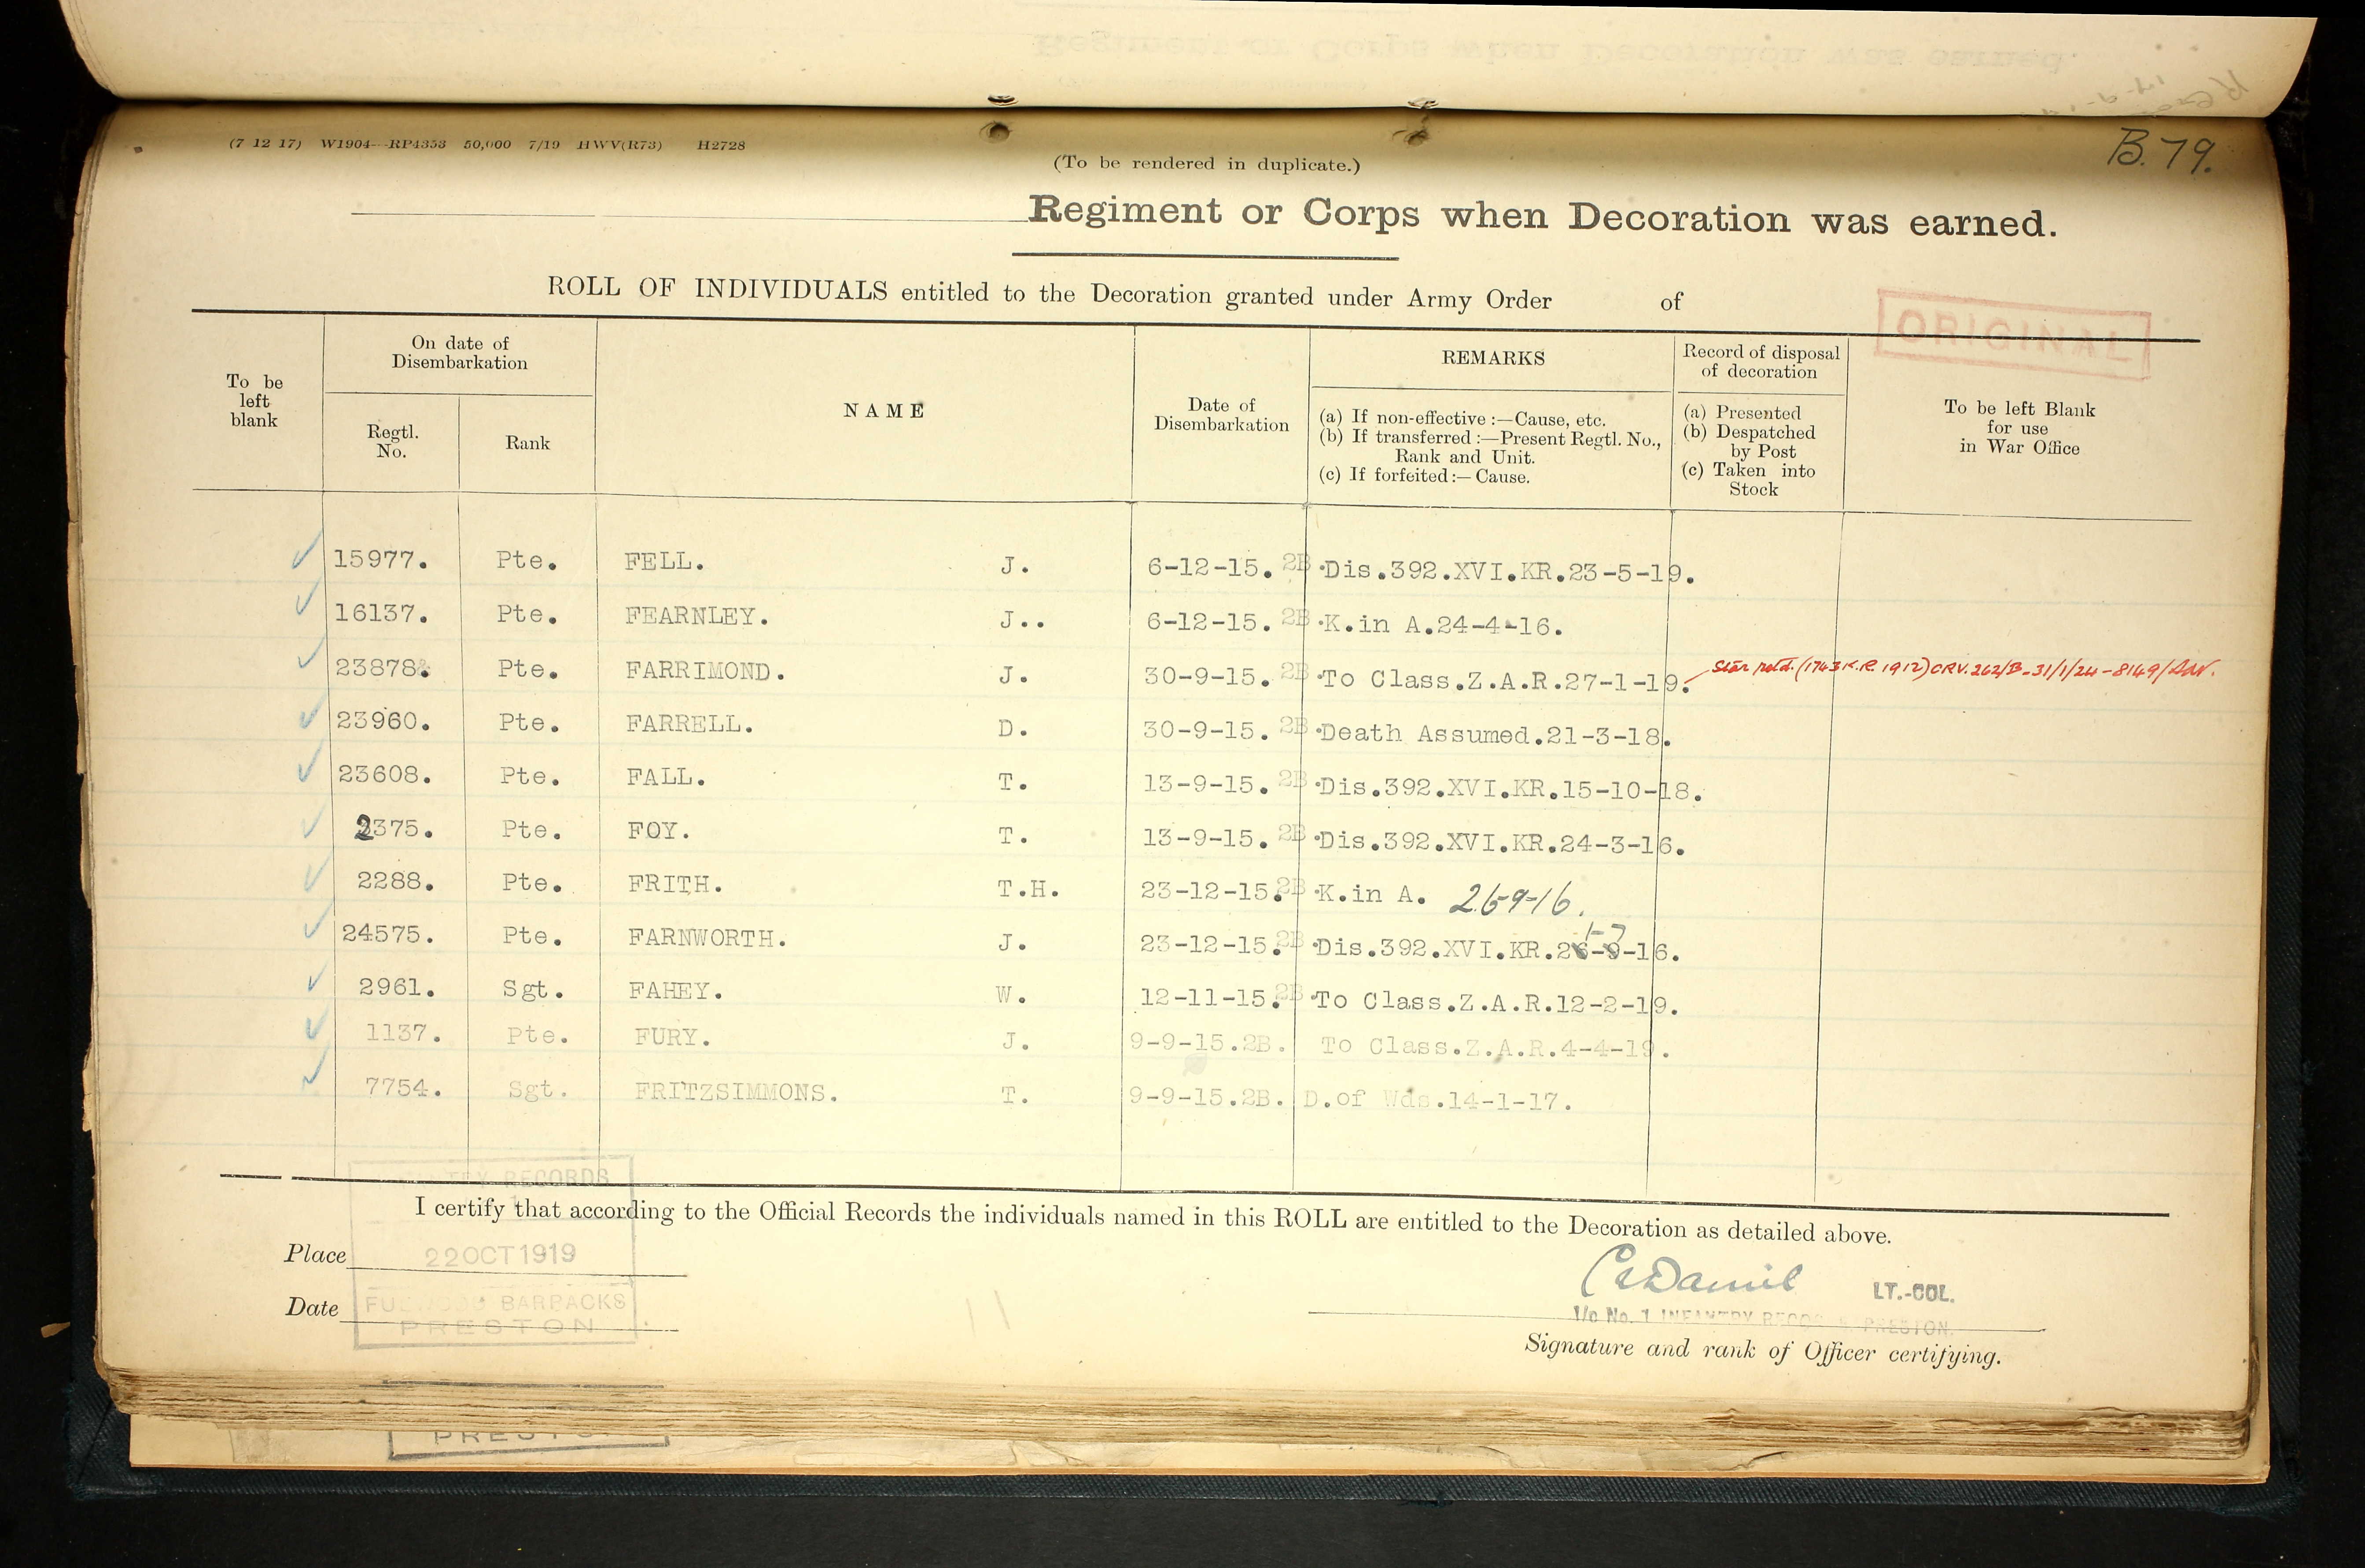 (7 12 17) W1904—RP4353 50,000 7/19 HWV(R73) H2728
B.79.
(To be rendered in duplicate.)
Regiment or Corps when Decoration was earned.
ROLL OF INDIVIDUALS entitled to the Decoration granted under Army Order of
ORIGINAL
To be left blank
On date of Disembarkation
Regtl. No.
Rank
NAME
Date of Disembarkation
REMARKS
(a) If non-effective :—Cause, etc.
(b) If transferred :—Present Regtl. No., Rank and Unit.
(c) If forfeited :—Cause.
Record of disposal of decoration
(a) Presented
(b) Despatched by Post
(c) Taken into Stock
To be left Blank for use in War Office
15977. Pte. FELL. J. 6-12-15. 2B Dis.392.XVI.KR.23-5-19.
16137. Pte. FEARNLEY. J.. 6-12-15. 2B K.in A.24-4-16.
23878. Pte. FARRIMOND. J. 30-9-15. 2B To Class.Z.A.R.27-1-19. Star retd. (1743 K.R. 1912) CRV. 262/B-31/1/24-8149/
23960. Pte. FARRELL. D. 30-9-15. 2B Death Assumed.21-3-18.
23608. Pte. FALL. T. 13-9-15. 2B Dis.392.XVI.KR.15-10-18.
2375. Pte. FOY. T. 13-9-15. 2B Dis.392.XVI.KR.24-3-16.
2288. Pte. FRITH. T.H. 23-12-15. 2B K.in A. 26-9-16.
1-7
24575. Pte. FARNWORTH. J. 23-12-15. 2B Dis.392.XVI.KR.26-9-16.
2961. Sgt. FAHEY. W. 12-11-15. 2B To Class.Z.A.R.12-2-19.
1137. Pte. FURY. J. 9-9-15.2B. To Class.Z.A.R.4-4-19.
7754. Sgt. FRITZSIMMONS. T. 9-9-15.2B. D.of Wds.14-1-17.
RECORDS
I certify that according to the Official Records the individuals named in this ROLL are entitled to the Decoration as detailed above.
Place
22 OCT 1919
Date
FULWOOD BARRACKS
PRESTON
LT.-COL.
I/c No. 1 INFANTRY RECORDS, PRESTON.
Signature and rank of Officer certifying.
PRESTON